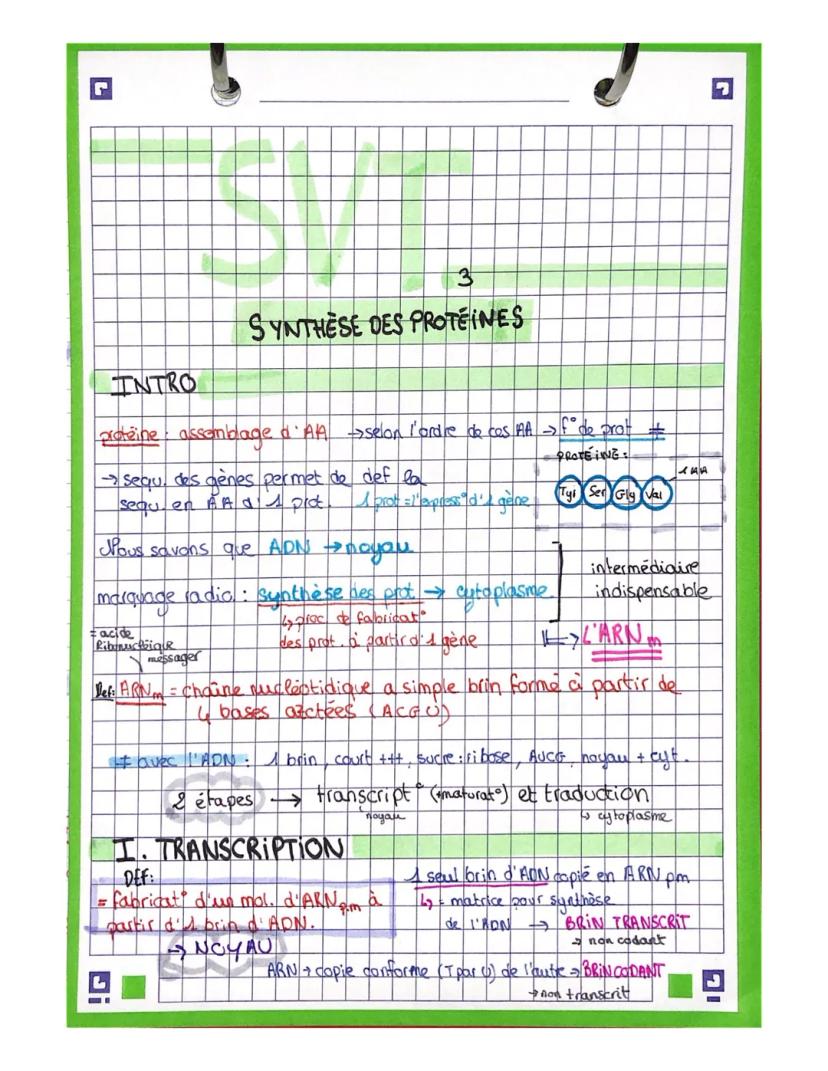 SVT
3
SYNTHÈSE DES PROTÉINES
INTRO
protéine : assemblage d'AA → selon l'ordre de ces AA → f° de prot ≠
PROTÉINE :
1 AA
→ sequ. des gènes permet de def la
Tyr Ser Gly Val
sequ. en AA d'1 prot. 1 prot = l'express° d'1 gène
Nous savons que ADN → noyau
intermédiaire
marquage radio : synthèse des prot → cytoplasme
indispensable
↳ proc de fabricat°
des prot. à partir d'1 gène
↳ L'ARNm
= acide
Ribonucléique
messager
Def: ARNm = chaîne nucléotidique a simple brin formé à partir de
4 bases azotées (ACGU)
≠ avec l'ADN : 1 brin, court +++, sucre : ribose, AUCG, noyau + cyt.
2 étapes → transcript° (+maturat°) et traduction
noyau
↳ cytoplasme
I. TRANSCRIPTION
DEF:
= fabricat° d'un mol. d'ARNpm à
partir d'1 brin d'ADN.
→ NOYAU
1 seul brin d'ADN copié en ARN pm
↳ = matrice pour synthèse
de l'ADN → BRIN TRANSCRIT
→ non codant
ARN → copie conforme (T par U) de l'autre → BRIN CODANT
→ non transcrit